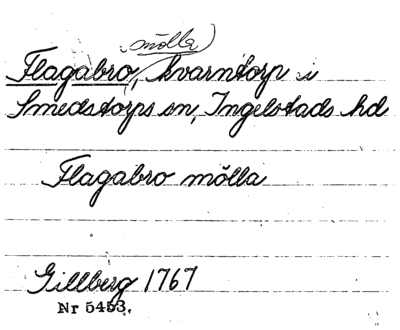 (mölla)
Flagabro, kvarntorp i
Smedstorps sn, Ingelstads hd
Flagabro mölla
Gillberg 1767
Nr 5453.